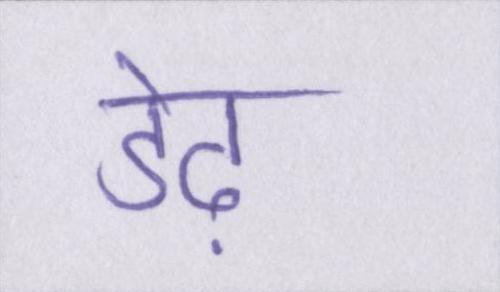 डेढ़